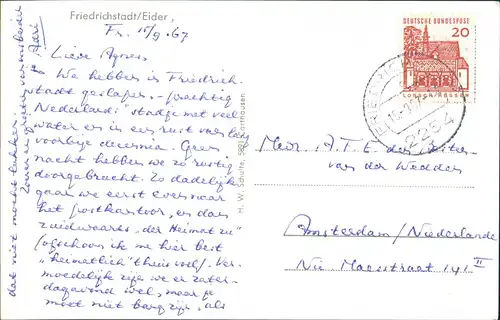 Friedrichstadt/Eider,
Fr. 15/9 '67
Lieve Agnes,
We hebben in Friedrich-
stadt geslapen, – prachtig
Nederlands stadje met veel
water en in een rust van lang
voorbije decennia. Geen
nacht hebben we zo rustig
doorgebracht. Zo dadelijk
gaan we eerst even naar
het postkantoor, en dan
zuidwaarts "der Heimat zu"
(ofschoon ik me hier best
"heimatlich" thuis voel). Ver-
moedelijk zijn we er zater-
dagavond wel, maar je
moet niet bang zijn, als
dat niet mocht lukken.
H. W. Schulte,
DEUTSCHE BUNDESPOST
20
LORSCH/HESSEN
2254
A.F.E.
van der
Amsterdam/Niederlande
Nic. Maesstraat 141 II